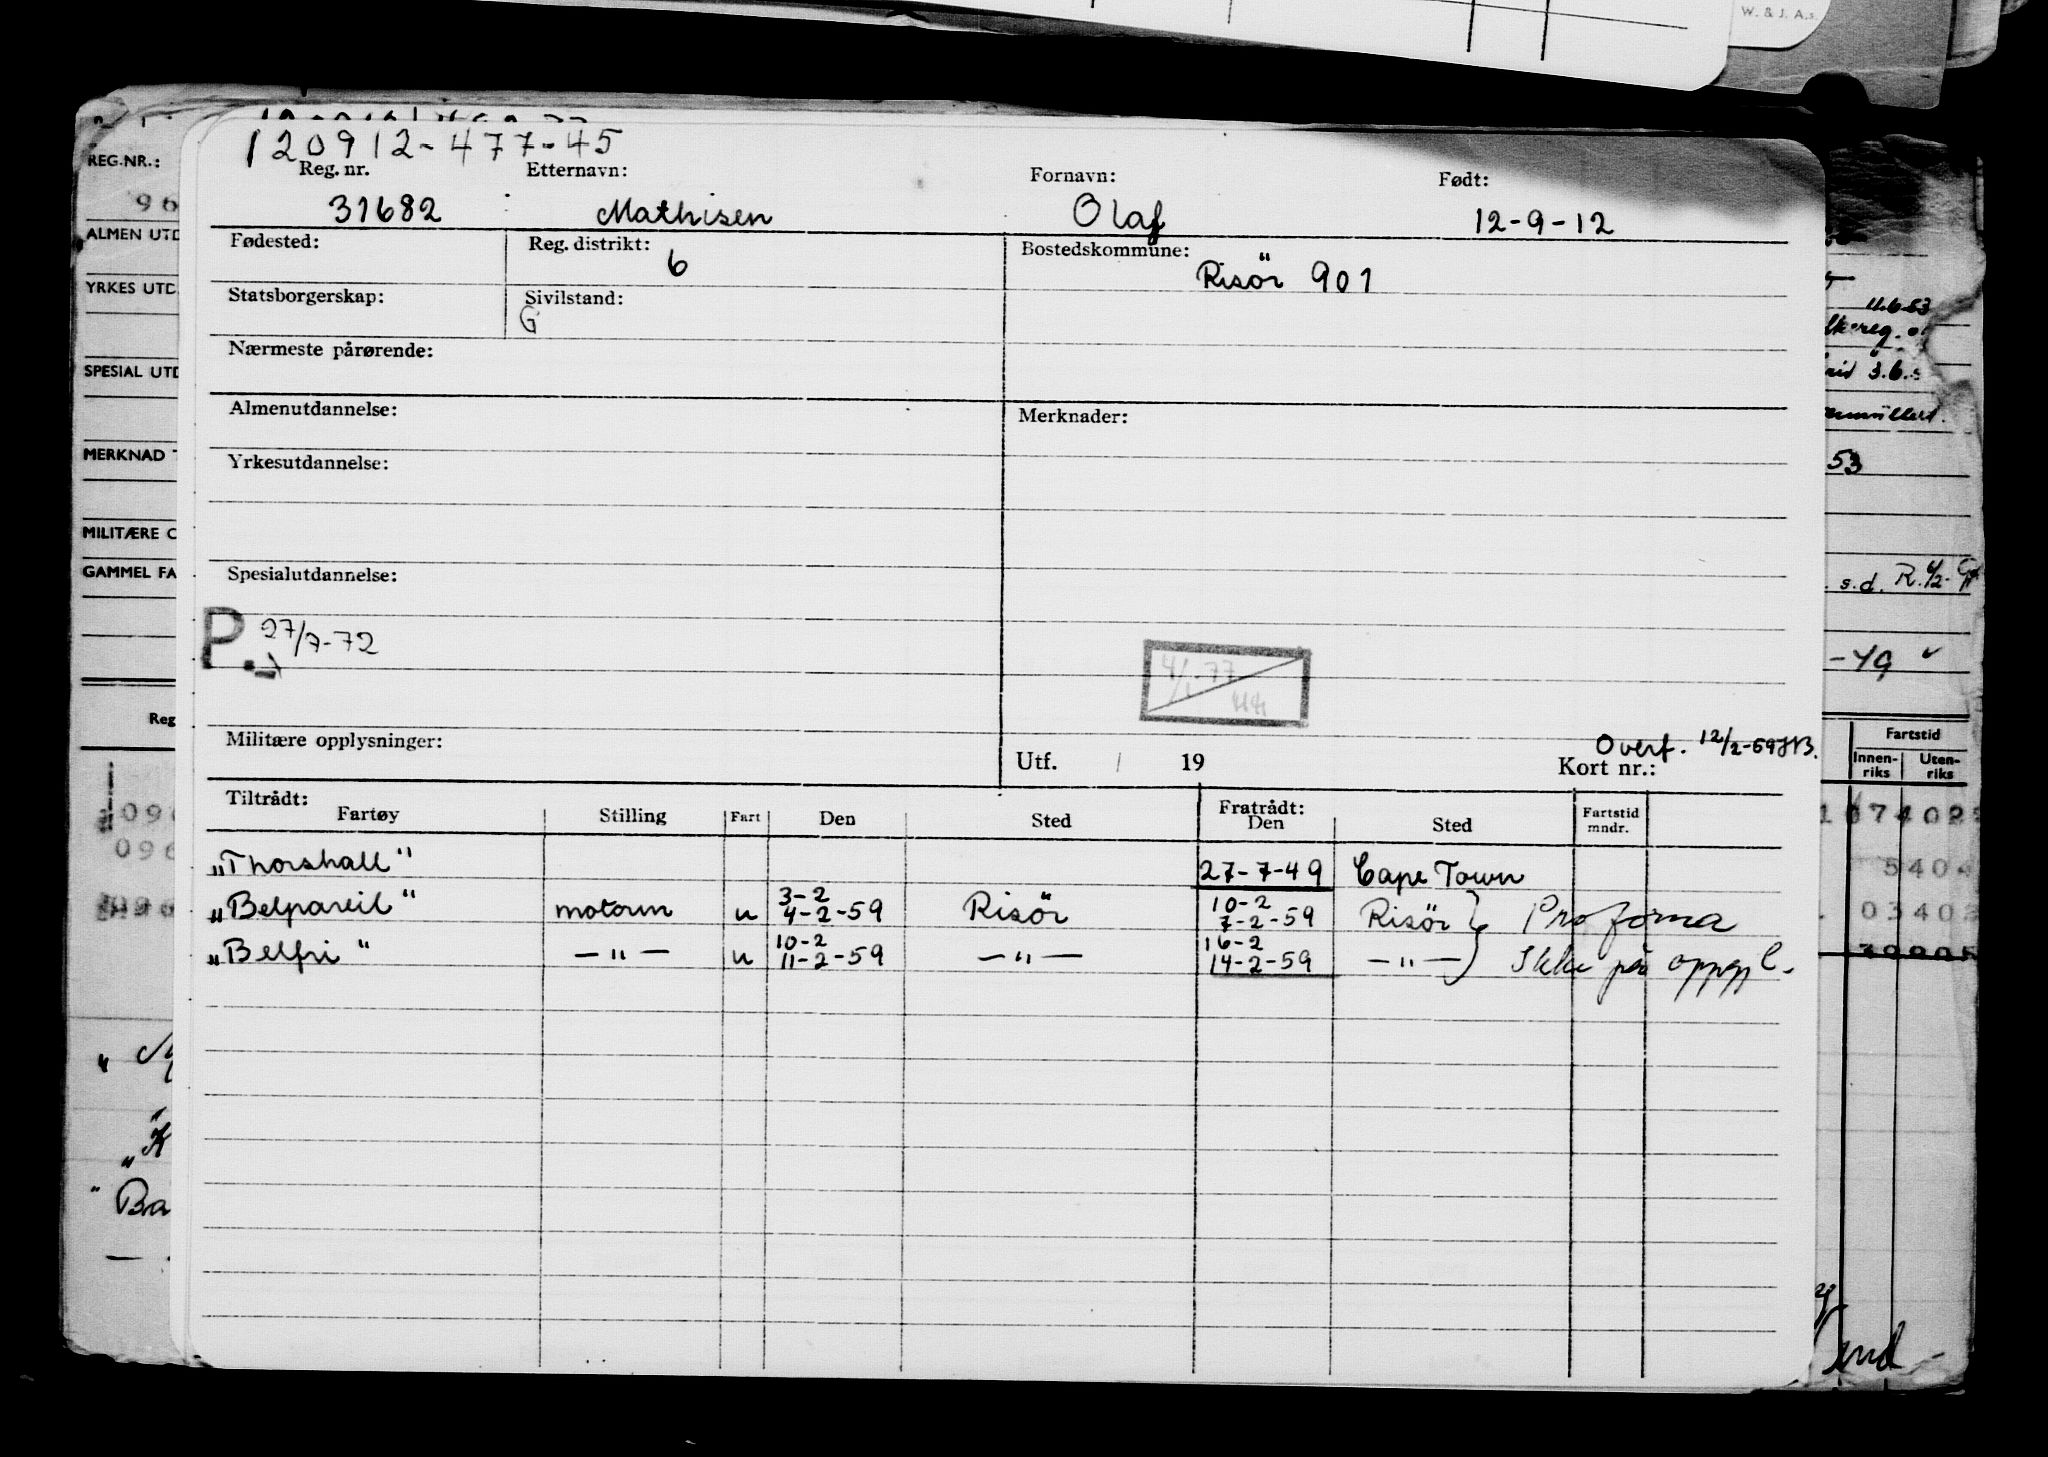 W. & J. A.s.
120912-477-45
REG.NR.:
Reg. nr. Etternavn: Fornavn: Født:
96
31682 Mathisen Olaf 12-9-12
ALMEN UTD
Fødested: Reg. distrikt: 6 Bostedskommune: Risör 901
YRKES UTD
Statsborgerskap: Sivilstand: G
11.6.53
Nærmeste pårørende:
SPESIAL UTD
3.6.
Almenutdannelse: Merknader:
MERKNAD
Yrkesutdannelse:
53
MILITÆRE O
GAMMEL FA
Spesialutdannelse:
s.d. R.
P. 27/7-72
4/1-77
-49
Reg
Militære opplysninger: Utf. / 19 Overf. 12/2-59 HB.
Kort nr.:
Fartstid
Innen-riks Uten-riks
Tiltrådt: Fratrådt:
Fartøy Stilling Fart Den Sted Den Sted Fartstid mndr.
"Thorshall" 27-7-49 Cape Town
"Belpareil" motorm u 3-2 4-2-59 Risör 10-2 7-2-59 Risör } Proforma
"Belfri" —"— u 10-2 11-2-59 —"— 16-2 14-2-59 —"— } Ikke på oppgj.
096
096
5404
"K
"Ba